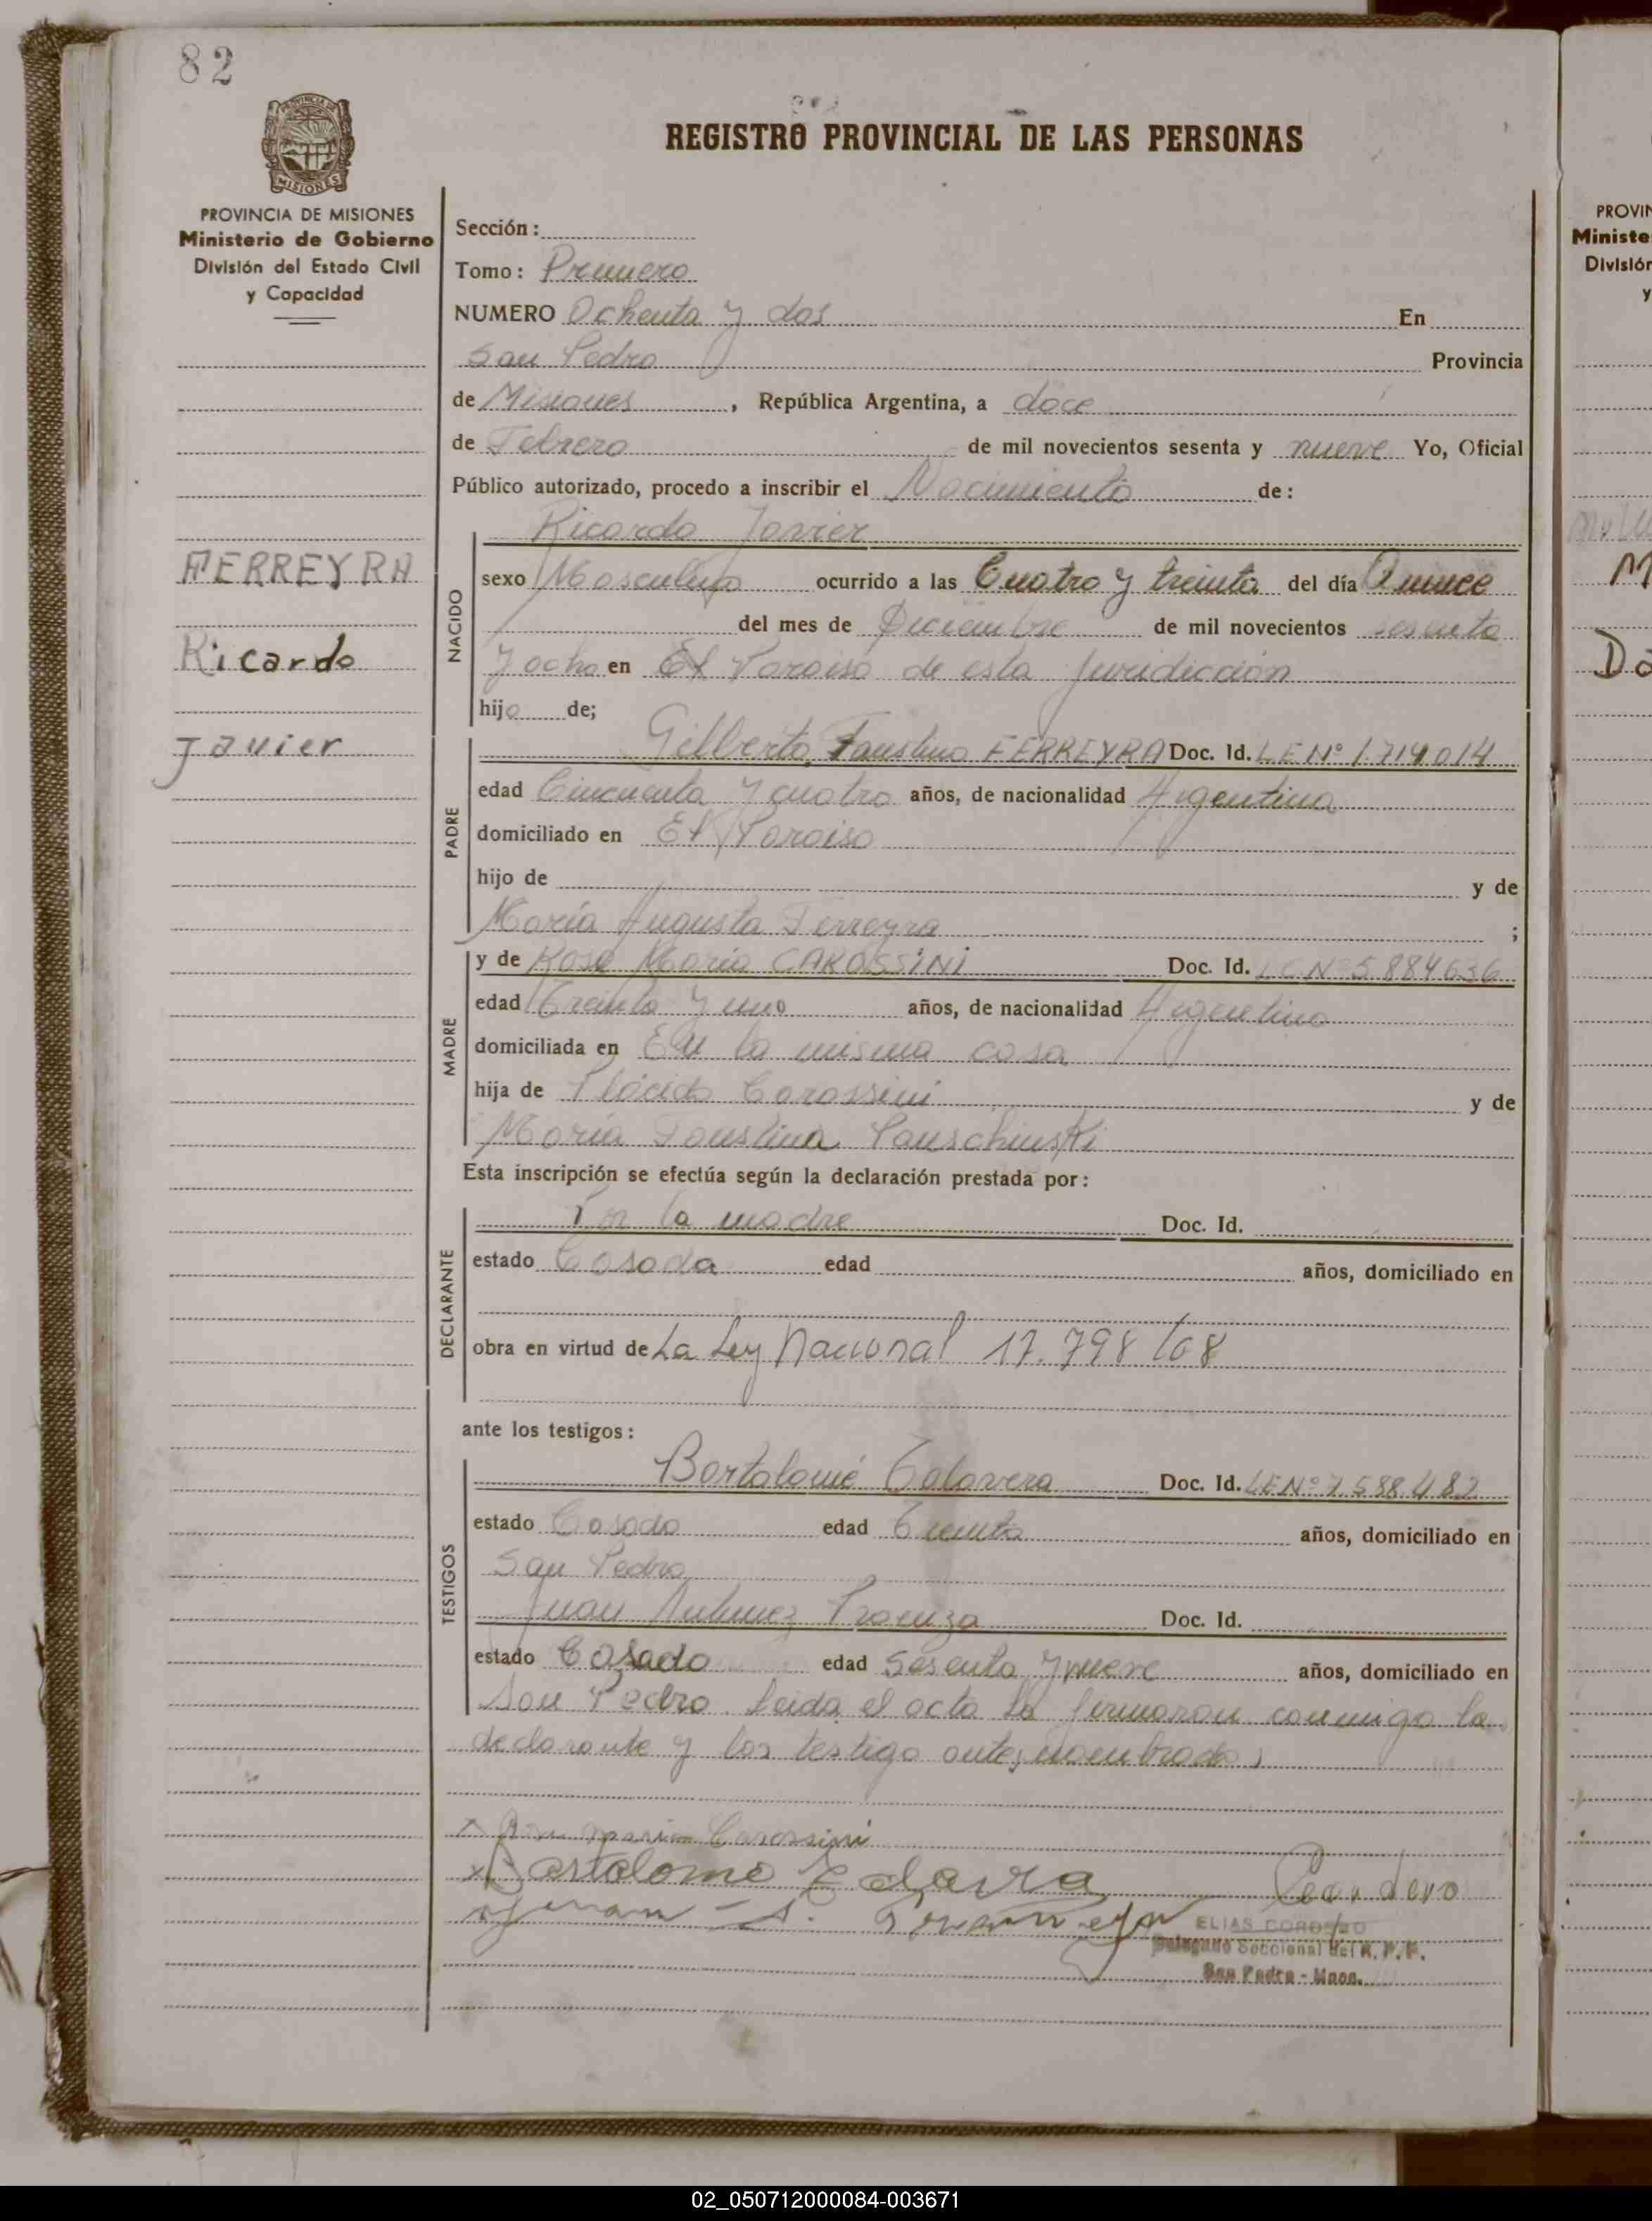 82
PROVINCIA DE MISIONES
REGISTRO PROVINCIAL DE LAS PERSONAS
PROVINCIA DE MISIONES
Ministerio de Gobierno
División del Estado Civil
y Capacidad
FERREYRA
Ricardo
Javier
Sección:
Tomo: Primero
NUMERO Ochenta y dos En
San Pedro Provincia
de Misiones, República Argentina, a doce
de Febrero de mil novecientos sesenta y nueve Yo, Oficial
Público autorizado, procedo a inscribir el Nacimiento de:
NACIDO
Ricardo Javier
sexo Masculino ocurrido a las Cuatro y treinta del día Quince
del mes de Diciembre de mil novecientos sesenta
y ocho en El Paraiso de esta Juridicción
hijo de;
PADRE
Gilberto Faustino FERREYRA Doc. Id. LE Nº 1.714.014
edad Cincuenta y cuatro años, de nacionalidad Argentina
domiciliado en El Paraiso
hijo de y de
María Augusta Ferreyra ;
MADRE
y de Rosa María CAROSSINI Doc. Id. LC Nº 5.884.636
edad Treinta y uno años, de nacionalidad Argentina
domiciliada en En la misma casa
hija de Plácido Carossini y de
María Faustina Pauschinski
Esta inscripción se efectúa según la declaración prestada por:
DECLARANTE
Por la madre Doc. Id.
estado Casada edad años, domiciliado en
obra en virtud de La Ley Nacional 17.798/68
ante los testigos:
TESTIGOS
Bortolomé Talavera Doc. Id. LE Nº 7.588.482
estado Casado edad Treinta años, domiciliado en
San Pedro
Juan Doc. Id.
estado Casado edad Sesenta y nueve años, domiciliado en
San Pedro. Leida el acta la firmaron conmigo la
declarante y los testigo antes nombrados
x Rosa maria Carossini
x Bartolome Talavera
x Juan
ELIAS CORDERO
Delegado Seccional del R. P. P.
San Pedro - Mnes.
PROVIN
Ministe
División
y
M
Da
02_050712000084-003671